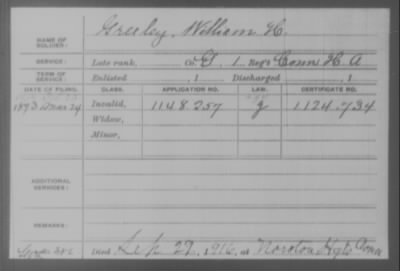 NAME OF SOLDIER: Greeley, William H.
SERVICE: Late rank, Co. G, 1 Reg't Conn H. A
TERM OF SERVICE: Enlisted , 1 Discharged , 1
DATE OF FILING. CLASS. APPLICATION NO. LAW. CERTIFICATE NO.
1893 Mar 24 Invalid, 1148.257 g 1.124.734
Widow,
Minor,
ADDITIONAL SERVICES:
REMARKS:
Died Sep. 27, 1916, at Noroton Hgts Conn